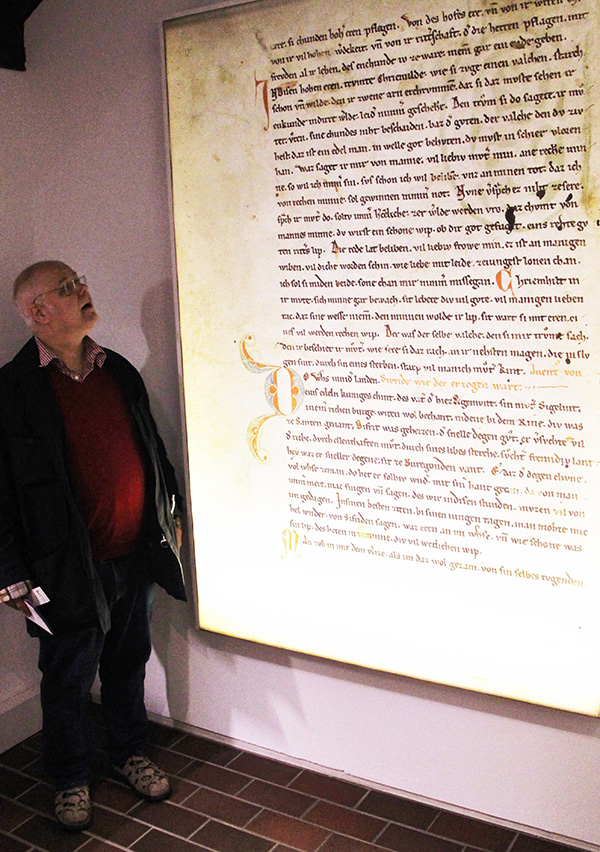 ir hoh eren pflagen. Von des hofes ere. vñ von ir witen
von ir vil hohen vñ von ir ritt'schaft. d' die herren pflagen. mit
freuden al ir leben. des enchunde iv ze ware niem̄ gar ein ende geben.
In disen hohen eren. trvmte Chriemhilde. wie si zvge einen valchen. starch
schon vñ wilde. den ir zwene arn erchrvmmen. daz si daz mvste sehen ir
enkunde in dirre w'lde. leid' nimm' geschehē. Den trǒm si do sagete. ir mv
ter vten. sine chundes niht bescheiden. baz d' gvten. der valche den dv ziv
hest. daz ist ein edel man. in welle got behvten. dv mvst in schier vloren
han. Waz saget ir mir von manne. vil liebiv mvt' min. ane recken minne
so wil ich immer sin. svs schon ich wil belibē. vnz an minen tot. daz ich
von recken minne. sol gewinnen nimm' not.
sp'ch ir mvt' do. soltv imm' h'zecliche. zer w'lde werden vro. daz chvmt von
mannes minne. dv wirst ein schone wip. ob dir got gefuget. eins rehte gv
ten rit's lip. Die rede lat beliben. vil liebiv frowe min. ez ist an manigen
wiben. vil diche worden schin. wie liebe mit leide. ze iungest lonen chan.
ich sol si miden beide. sone chan mir nimm' missegan. Chriemhilt in
ir mvte. sich minne gar bewach. sit lebete div vil gvte. vil manigen lieben
tac. daz sine wesse niem̄. den minnen wolde ir lip. sit wart si mit eren. ei
nes vil werden rechen wip. Der was der selbe valche. den si in ir trǒme sach.
den ir beschiet ir mvt'. wie sere si daz rach. an ir nehsten magen. die in slv
gen sint. dvrch sin eins sterben. starp vil manich mvt' kint. Auent' von
Sivride wie der erzogen wart.
Do whs in nid'landen.
eins edeln kuniges chint. des vat' d' hiez Sigemvnt. sin mvt' Sigelint.
in einer richen burge. witen wol bechant. nidene bi dem Rine. div was
ze Santen genant. Sifrit was geheizen. d' snelle degen gvt. er v'svchte vil
d' riche. dvrch ellenthaften mvt. dvrch sines libes sterche. sv̊cht' fremidiv lant.
hey waz er sneller degene. sit ze Burgonden vant. E daz d' degen chvne.
vol whse ze man. do het er solhiv wnd'. mit sin' hant getan. da von man
imm' mere. mac singen vñ sagen. des wir in disen stunden. mvzen vil von
im gedagen. In sinen besten ziten. bi sinen iungen tagen. man mohte mic
hel wnder. von Sifriden sagen. waz eren an im whse. vñ wie schone was
sin lip. des heten in ze minne. div vil wetlichen wip.
Man zoh in mit dem vlize. als im daz wol gezam. von sin selbes tvgenden